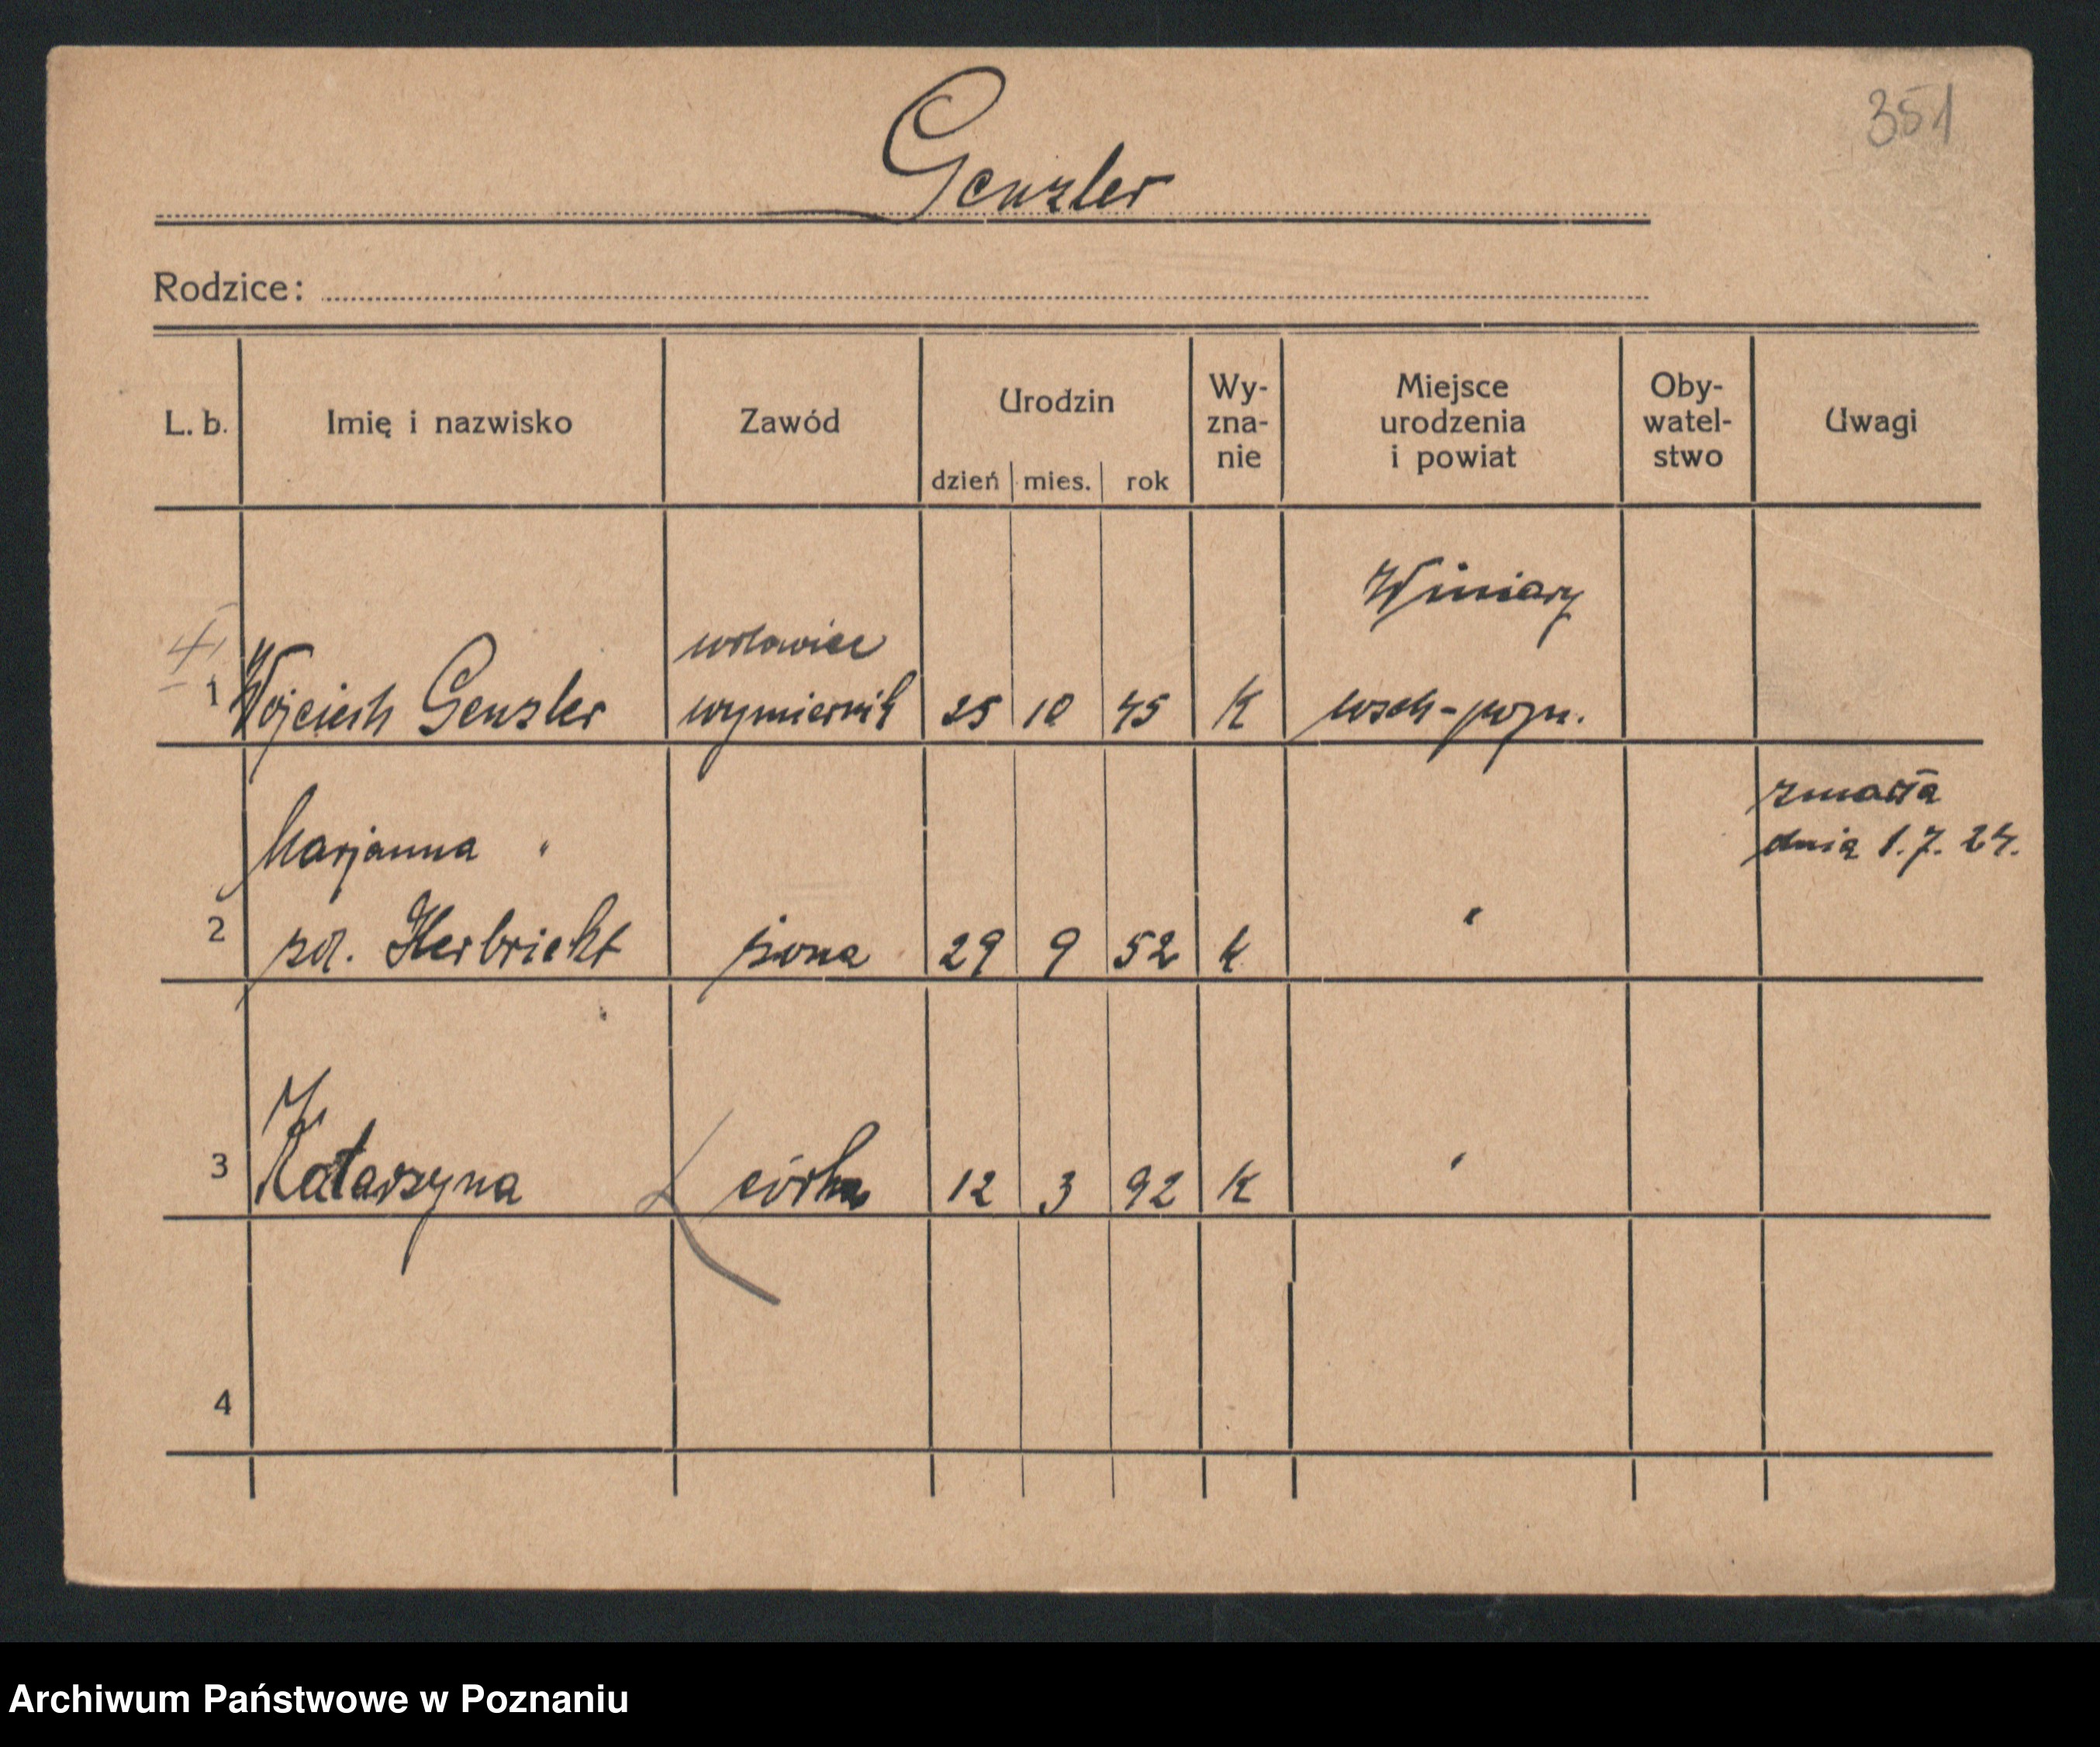 351
Genzler
Rodzice:
L. b. Imię i nazwisko Zawód Urodzin Wy-zna-nie Miejsce urodzenia i powiat Oby-watel-stwo Uwagi
dzień mies. rok
Winiary
1 Wojciech Genzler wymiernik 25 10 45 K wsch-pozn.
zmarła
Marjanna " dnia 1.7.24.
2 zd. Herbricht żona 29 9 52 k "
3 Katarzyna córka 12 3 92 K "
4
Archiwum Państwowe w Poznaniu